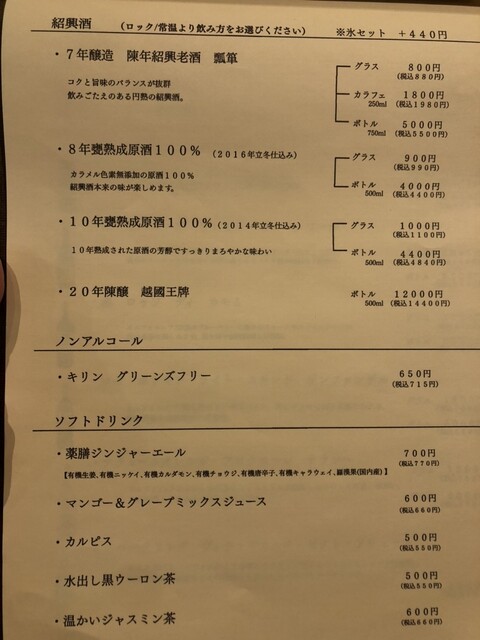 紹興酒　（ロック/常温より飲み方をお選びください）　※氷セット　+440円
・7年醸造　陳年紹興老酒　瓢箪
グラス　800円
（税込880円）
コクと旨味のバランスが抜群
飲みごたえのある円熟の紹興酒。
カラフェ　1800円
250ml　（税込1980円）
ボトル　5000円
750ml　（税込5500円）
・8年甕熟成原酒100%　（2016年立冬仕込み）
グラス　900円
（税込990円）
カラメル色素無添加の原酒100%
紹興酒本来の味が楽しめます。
ボトル　4000円
500ml　（税込4400円）
・10年甕熟成原酒100%（2014年立冬仕込み）
グラス　1000円
（税込1100円）
10年熟成された原酒の芳醇ですっきりまろやかな味わい
ボトル　4400円
500ml　（税込4840円）
・20年陳醸　越國王牌
ボトル　12000円
500ml　（税込14400円）
ノンアルコール
・キリン　グリーンズフリー　650円
（税込715円）
ソフトドリンク
・薬膳ジンジャーエール　700円
（税込770円）
【有機生姜、有機ニッケイ、有機カルダモン、有機チョウジ、有機唐辛子、有機キャラウェイ、羅漢果(国内産)】
・マンゴー＆グレープミックスジュース　600円
（税込660円）
・カルピス　500円
（税込550円）
・水出し黒ウーロン茶　500円
（税込550円）
・温かいジャスミン茶　600円
（税込660円）